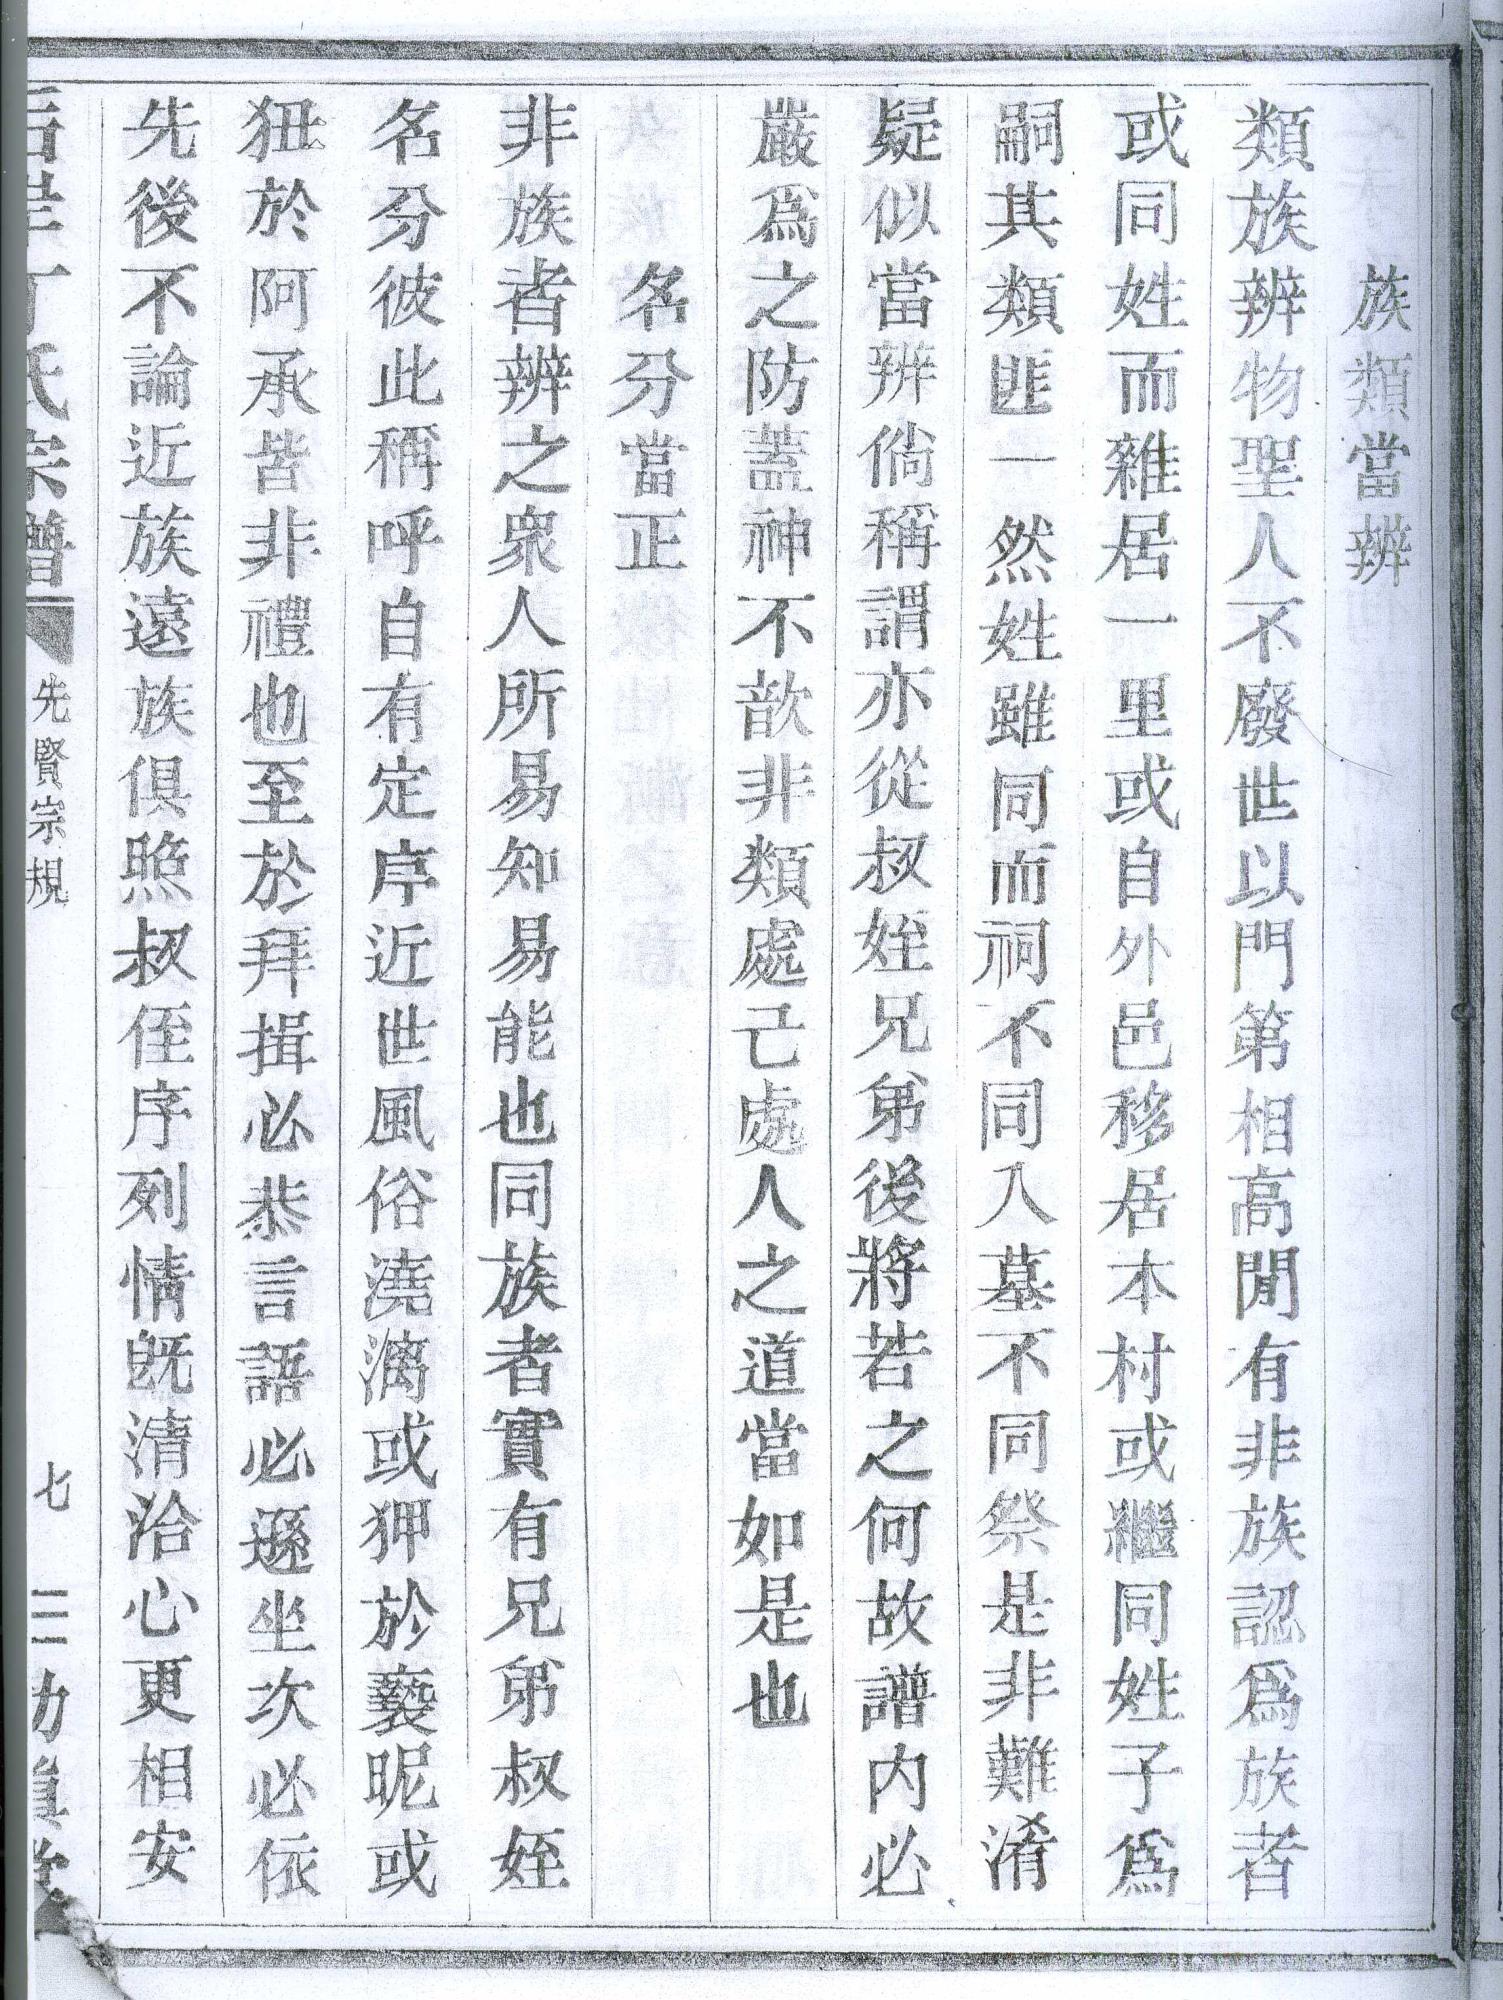 族類當辨
類族辨物聖人不廢世以門第相高閒有非族認爲族者
或同姓而雜居一里或自外邑移居本村或繼同姓子爲
嗣其類匪一然姓雖同而祠不同入墓不同祭是非難淆
疑似當辨倘稱謂亦從叔姪兄弟後將若之何故譜內必
嚴爲之防蓋神不歆非類處己處人之道當如是也
名分當正
非族者辨之衆人所易知易能也同族者實有兄弟叔姪
名分彼此稱呼自有定序近世風俗澆漓或狎於褻昵或
狃於阿承皆非禮也至於拜揖必恭言語必遜坐次必依
先後不論近族遠族俱照叔侄序列情旣清洽心更相安
丁氏宗譜
先賢宗規
七